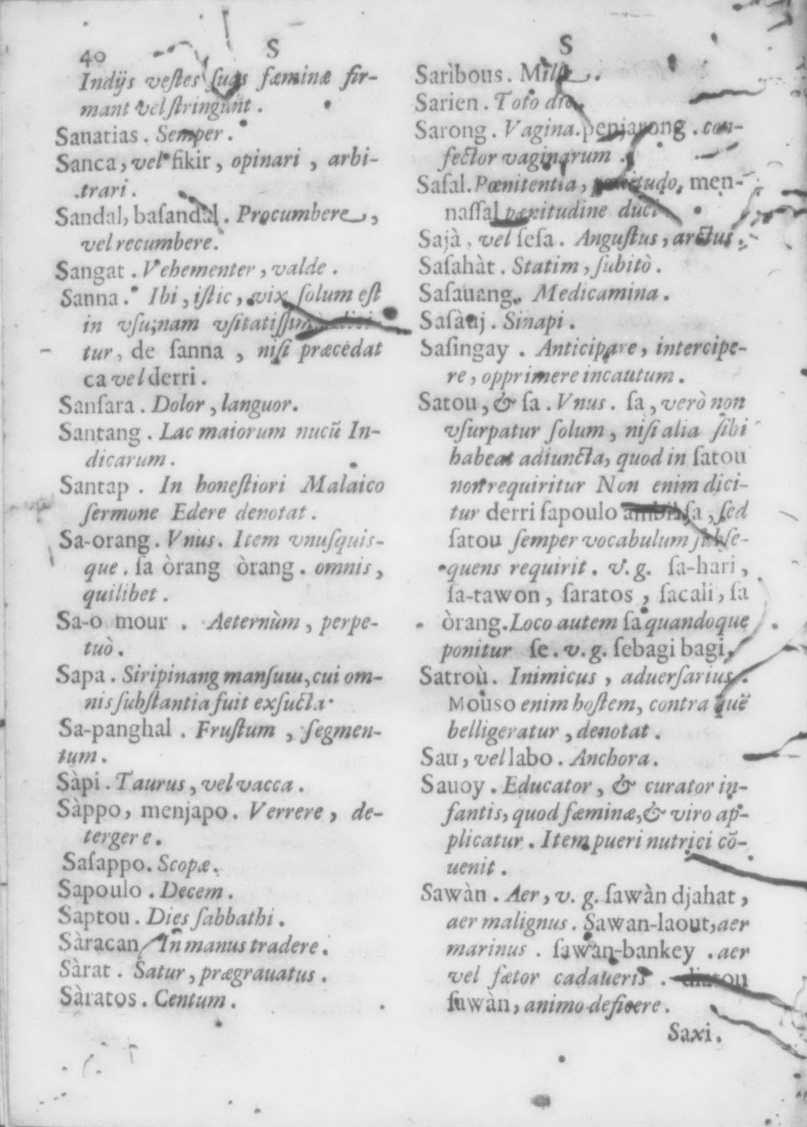 40
S
Indijs veſtes ſuas fæminæ fir-
mant vel ſtringunt.
Sanatias. Semper.
Sanca, vel fikir, opinari, arbi-
trari.
Sandal, baſandal. Procumbere,
vel recumbere.
Sangat. Vehementer, valde.
Sanna. Ibi, iſtic, vix ſolum eſt
in vſu, nam vſitatiſſimè dici
tur, de ſanna, niſi præcedat
ca vel derri.
Sanſara. Dolor, languor.
Santang. Lac maiorum nucū In-
dicarum.
Santap. In honeſtiori Malaico
ſermone Edere denotat.
Sa-orang. Vnus. Item vnuſquis-
que. ſa òrang òrang. omnis,
quilibet.
Sa-o mour. Aeternùm, perpe-
tuò.
Sapa. Siripinang manſum, cui om-
nis ſubſtantia fuit exſucta.
Sa-panghal. Fruſtum, ſegmen-
tum.
Sàpi. Taurus, vel vacca.
Sàppo, menjapo. Verrere, de-
tergere.
Saſappo. Scopæ.
Sapoulo. Decem.
Saptou. Dies ſabbathi.
Sàracan. In manus tradere.
Sàrat. Satur, prægrauatus.
Sàratos. Centum.
S
Sarìbous. Mille.
Sarien. Toto die.
Sarong. Vagina. penjarong. con-
fector vaginarum.
Saſal. Pœnitentia, menaſſal pœnitudine duci
Sajà, vel ſeſa. Anguſtus, arctus.
Saſahàt. Statim, ſubitò.
Saſauang. Medicamina.
Saſàuj. Sinapi.
Saſingay. Anticipare, intercipe-
re, opprimere incautum.
Satou, & ſa. Vnus. ſa, verò non
vſurpatur ſolum, niſi alia ſibi
habeat adiuncta, quod in ſatou
non requiritur Non enim dici-
tur derri ſapoulo ambil ſa, ſed
ſatou ſemper vocabulum ſubſe-
quens requirit. v. g. ſa-hari,
ſa-tawon, ſaratos, ſacali, ſa
òrang. Loco autem ſa quandoque
ponitur ſe. v. g. ſebagi bagi,
Satroù. Inimicus, aduerſarius.
Mouso enim hoſtem, contra quē
belligeratur, denotat.
Sau, vel labo. Anchora.
Sauoy. Educator, & curator in-
fantis, quod fæminæ, & viro ap-
plicatur. Item pueri nutrici cō-
uenit.
Sawàn. Aer, v. g. ſawàn djahat,
aer malignus. Sawan-laout, aer
marinus. ſawan-bankey. aer
vel fætor cadaueris.
ſuwàn, animo deficere.
Saxi.